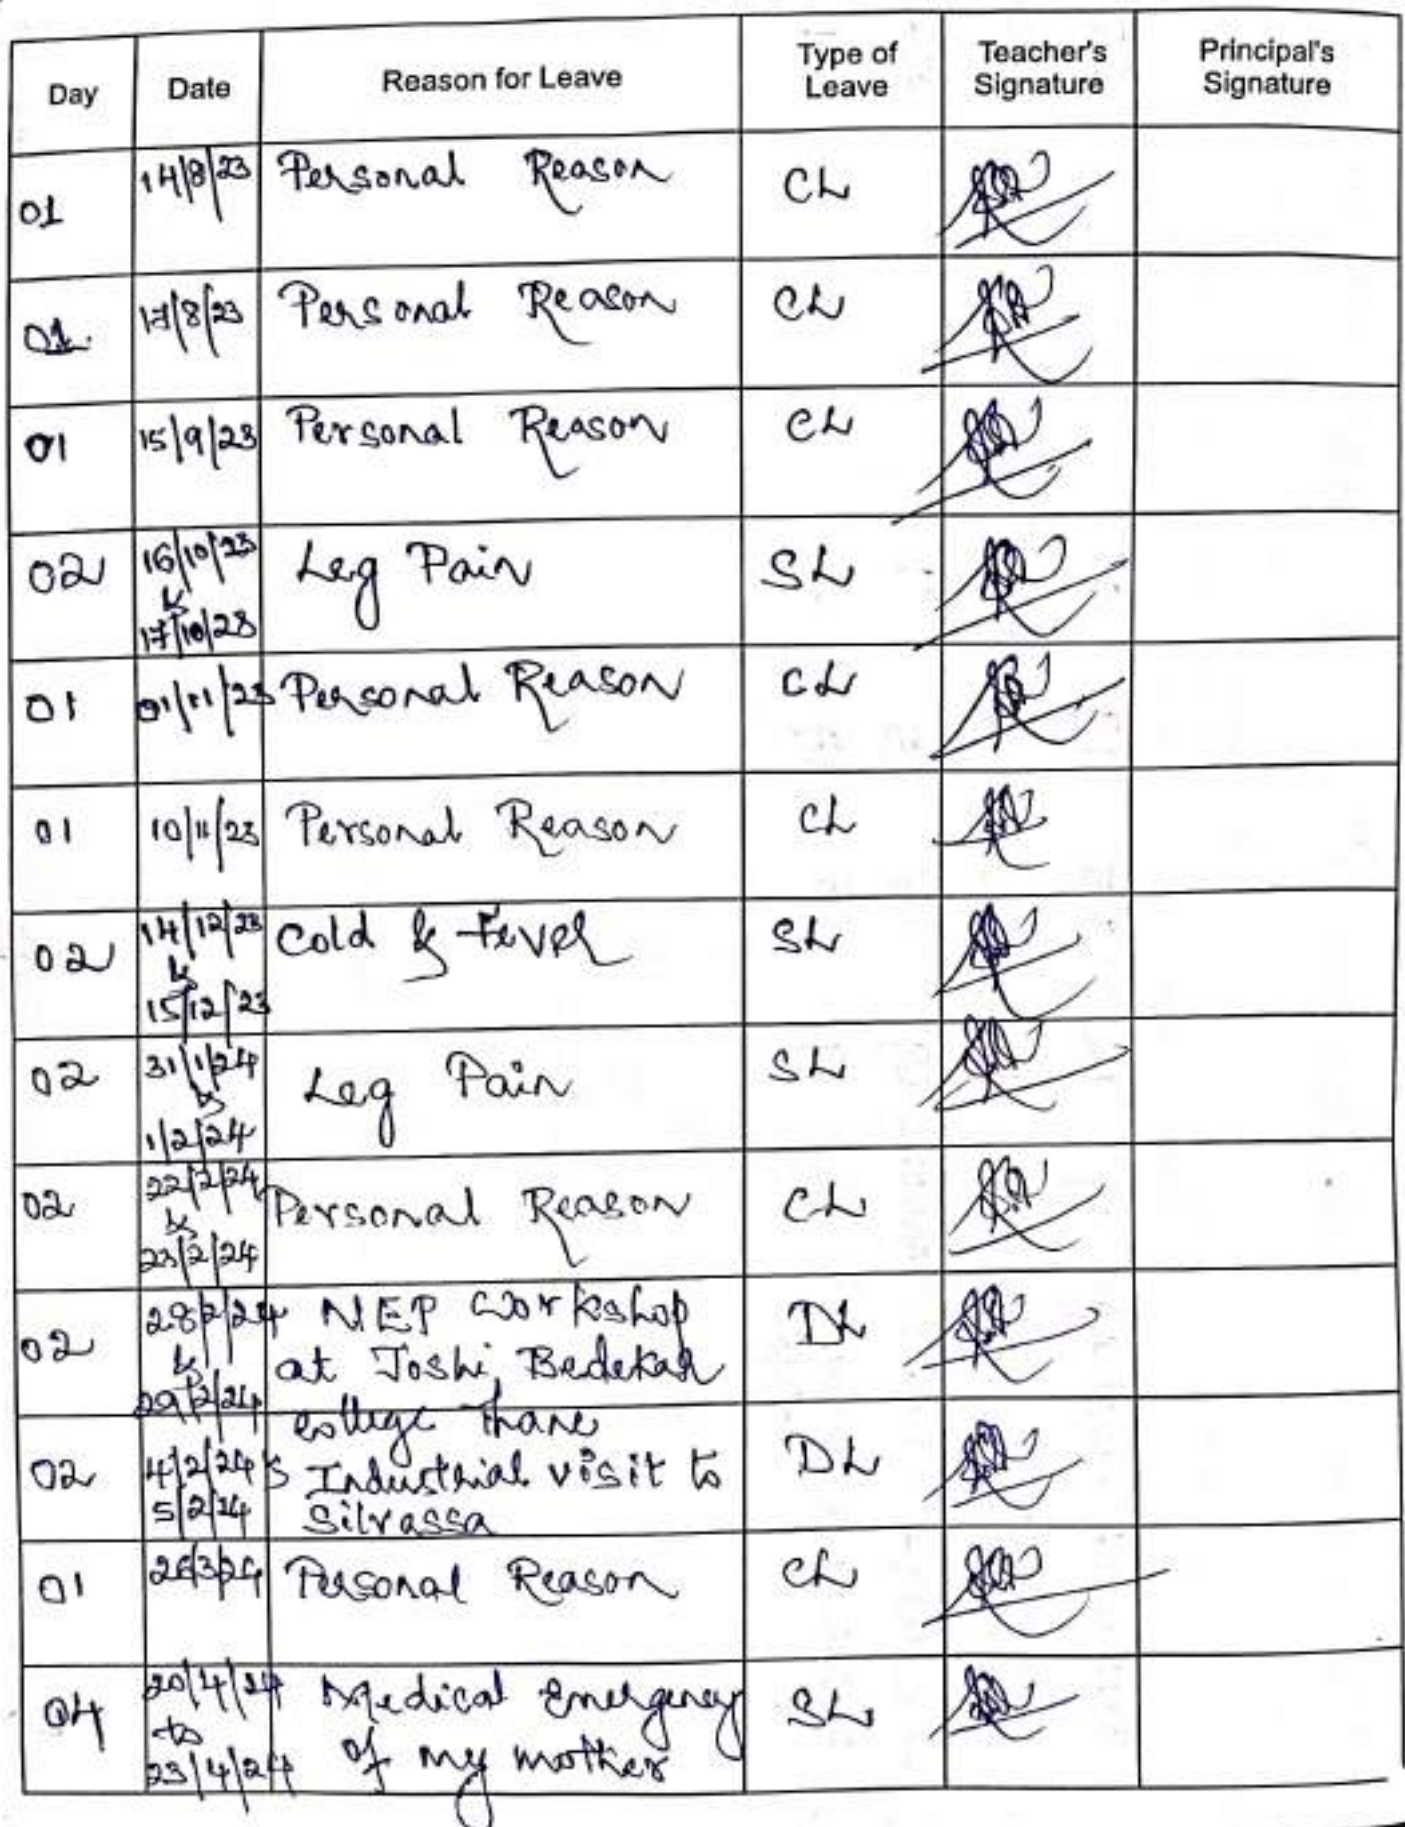 Day Date Reason for Leave Type of Leave Teacher's Signature Principal's Signature
01 14/8/23 Personal Reason CL
01 17/8/23 Personal Reason CL
01 15/9/23 Personal Reason CL
02 16/10/23 & 17/10/23 Leg Pain SL
01 01/11/23 Personal Reason CL
01 10/11/23 Personal Reason CL
02 14/12/23 & 15/12/23 Cold & Fever SL
02 31/1/24 & 1/2/24 Leg Pain SL
02 22/2/24 & 23/2/24 Personal Reason CL
02 28/2/24 & 29/2/24 NEP Workshop at Joshi, Bedekar college Thane DL
02 4/2/24 & 5/2/24 Industrial visit to Silvassa DL
01 26/3/24 Personal Reason CL
04 20/4/24 to 23/4/24 Medical Emergency of my mother SL